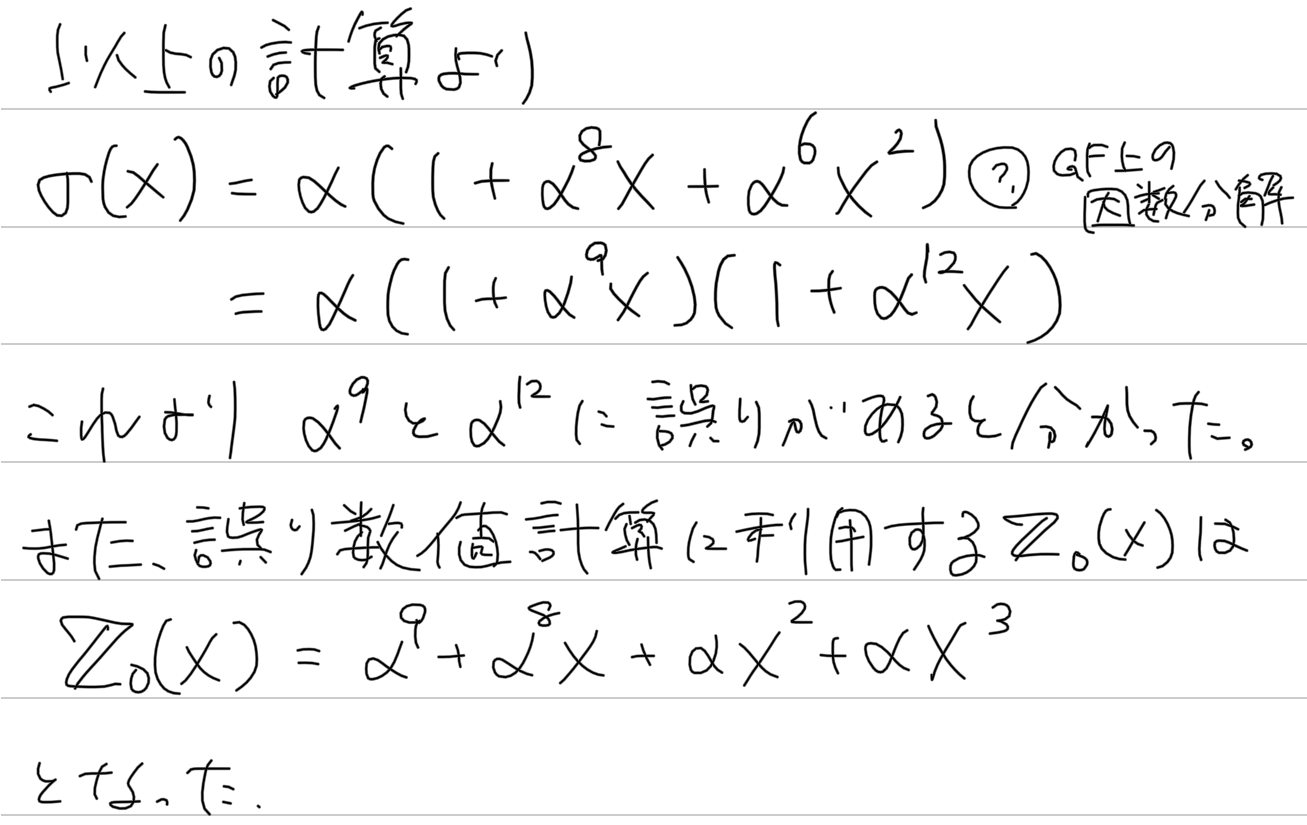 以上の計算より
σ(X) = α(1 + α⁸X + α⁶X²) ? GF上の
因数分解
= α(1 + α⁹X)(1 + α¹²X)
これより α⁹とα¹²に誤りがあると分かった。
また、誤り数値計算に利用するZ₀(X)は
Z₀(X) = α⁹ + α⁸X + αX² + αX³
となった.